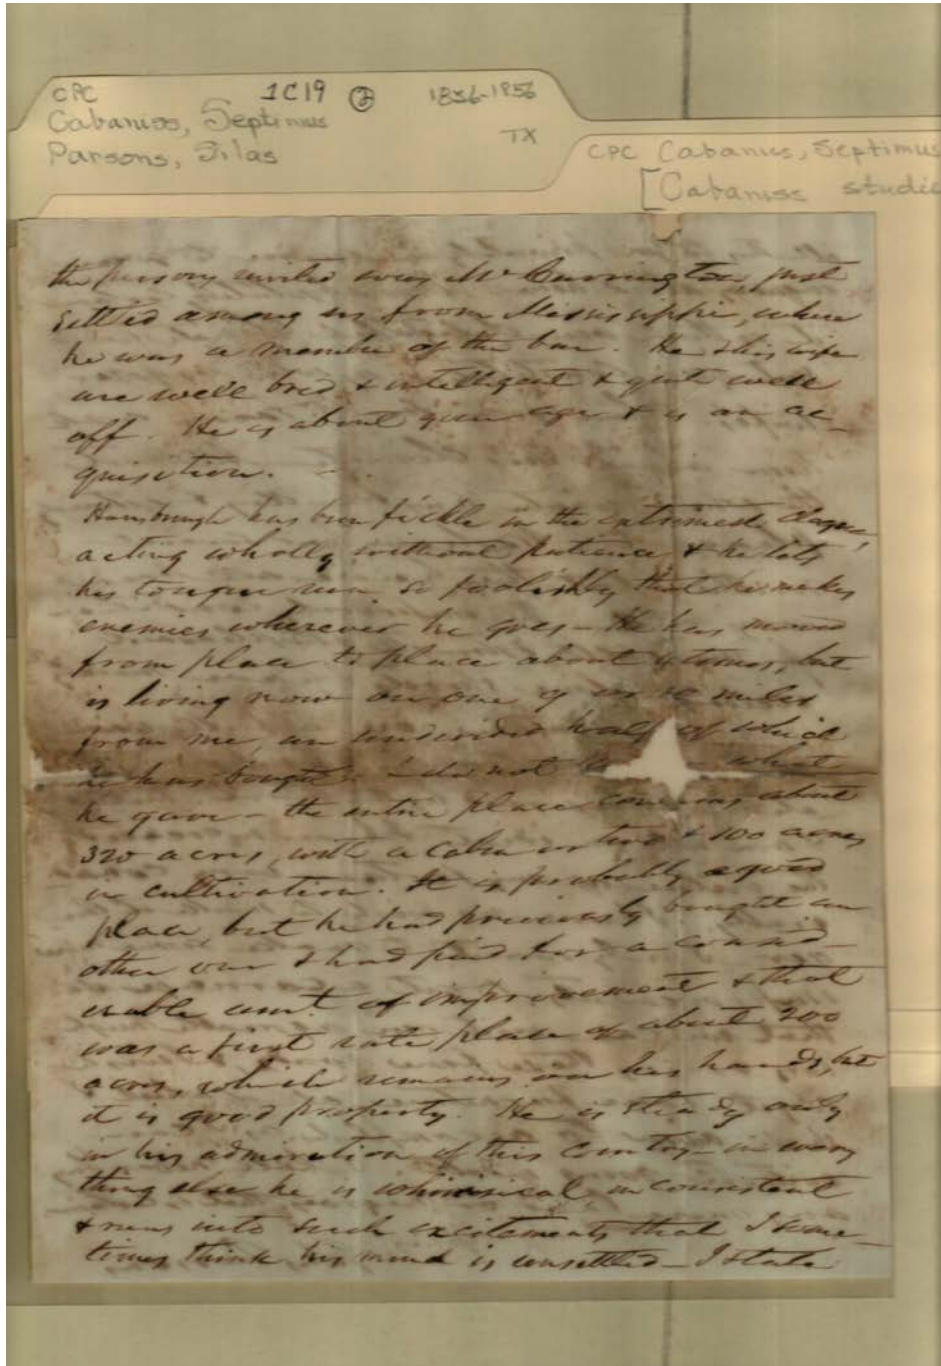 CPC 1C19 ② 1836-1856
Cabaniss, Septimus TX
Parsons, Silas
CPC Cabaniss, Septimus
[Cabaniss studie
the persons invited was Mr Currington, just
settled among us from Mississippi, where
he was a member of the bar. He & his wife
are well bred & intelligent & quite well
off. He is about your age & is an ac-
quisition.
has been fickle in the extremest degree,
acting wholly without patience & he lets
his tongue run so foolishly that he makes
enemies wherever he goes - He has moved
from place to place about 4 times, but
is living now on one of miles
from me, an undivided half of which
he has bought I do not what
he gave - the entire place contains about
320 acres, with a cabin or two & 100 acres
in cultivation. It is probably a good
place, but he had previously bought an
other one & had paid for a consid-
erable amt. of improvement & that
was a first rate place of about 200
acres, which remains on his hands, but
it is good property. He is steady only
in his admiration of this country - in every
thing else he is whimsical, inconsistent
& runs into such excitements that I some-
times think his mind is unsettled - I state